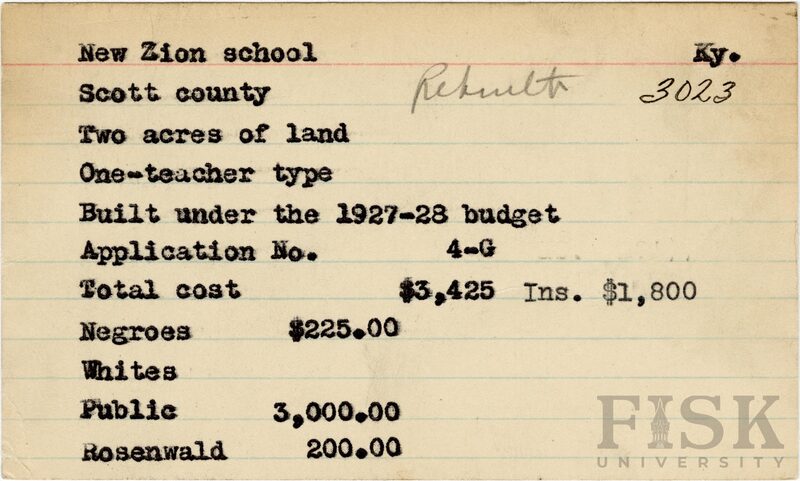 New Zion school Ky.
Scott county Rebuilt 3023
Two acres of land
One-teacher type
Built under the 1927-28 budget
Application No. 4-G
Total cost $3,425 Ins. $1,800
Negroes $225.00
Whites
Public 3,000.00
Rosenwald 200.00
FISK
UNIVERSITY